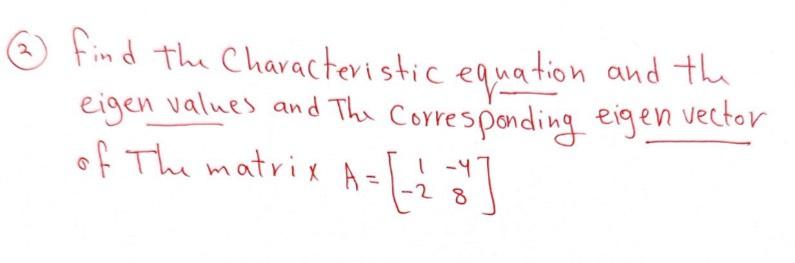 ② find the Characteristic equation and the
eigen values and The Corresponding eigen vector
of The matrix A = [1 -4
-2 8]